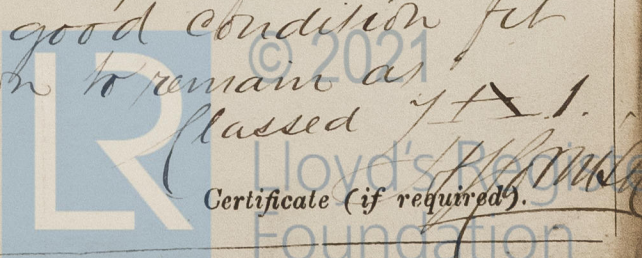 good condition fit
to remain as
Classed
Certificate (if required).
© 2021
Lloyd's Register
Foundation
LR